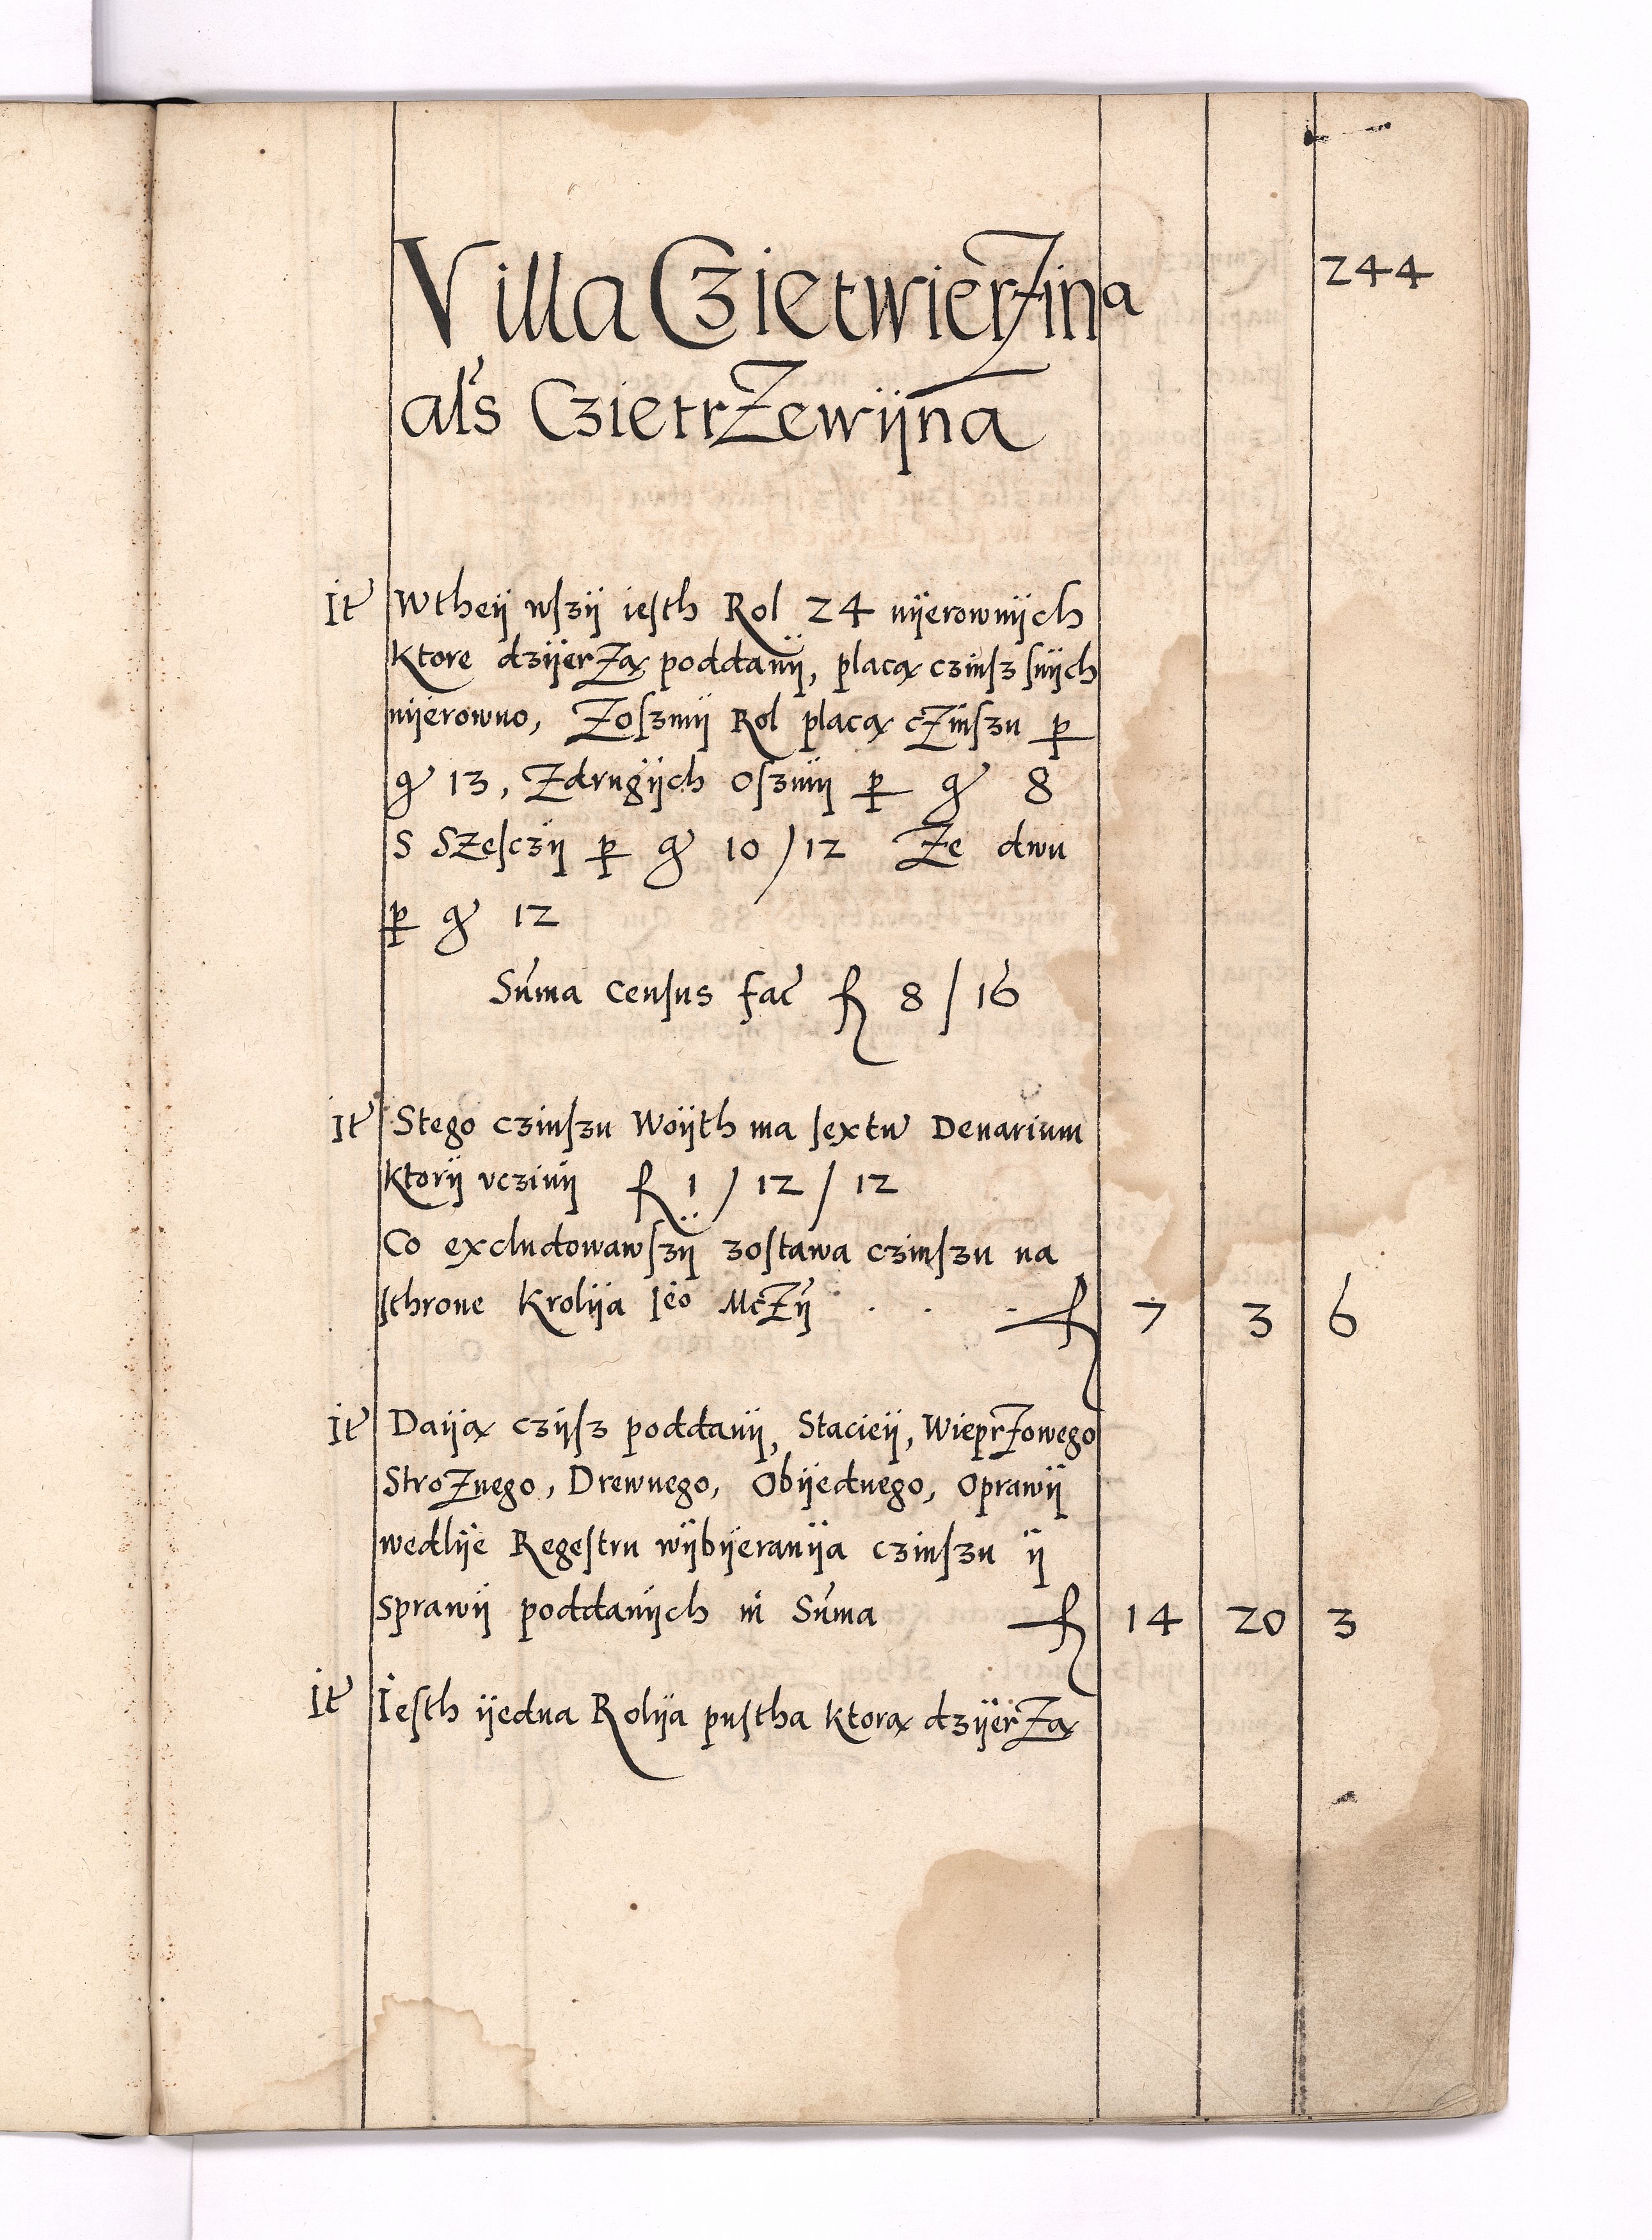 244
Villa Czietwierzina
als Czietrzewijna
It Wtheÿ wszÿ iesth Rol 24 nÿerownÿch
Ktore dzÿerzą poddanÿ, placą czinsz snÿch
nÿerowno, Zoszmÿ Rol placą czinszu p
gr 13, Zdrugÿch oszmÿ p gr 8
S Szesczÿ p gr 10 / 12 Ze dwu
p gr 12
Suma Census fac f 8 / 16
It Stego czinszu Woÿth ma sextu Denarium
ktorÿ vczinÿ f 1 / 12 / 12
Co excludowawszÿ zostawa czinszu na
sthrone Krolÿa Ieo Mczÿ . . . f 7 3 6
It Daÿą czÿsz poddanÿ, Stacieÿ, Wieprzowego
Stroznego, Drewnego, Obÿednego, Oprawÿ
wedlÿe Regestru wÿbÿeranÿa czinszu ÿ
sprawÿ poddanÿch in Suma f 14 20 3
It Iesth ÿedna Rolÿa pustha ktorą dzÿerzą